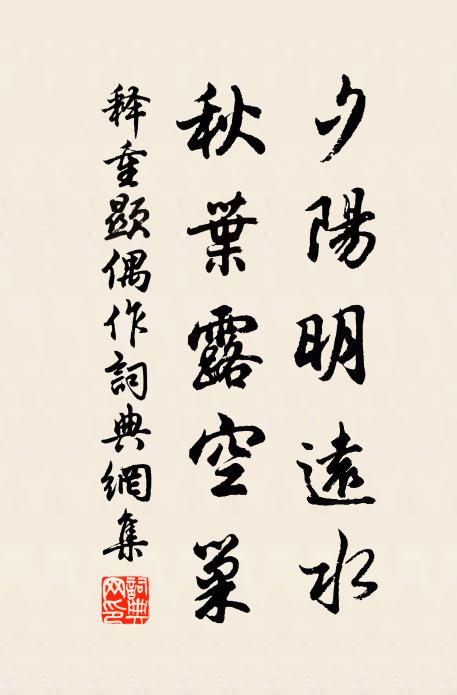 夕陽明遠水
秋葉露空巢
释重顕偶作詞典網集
詞典網印